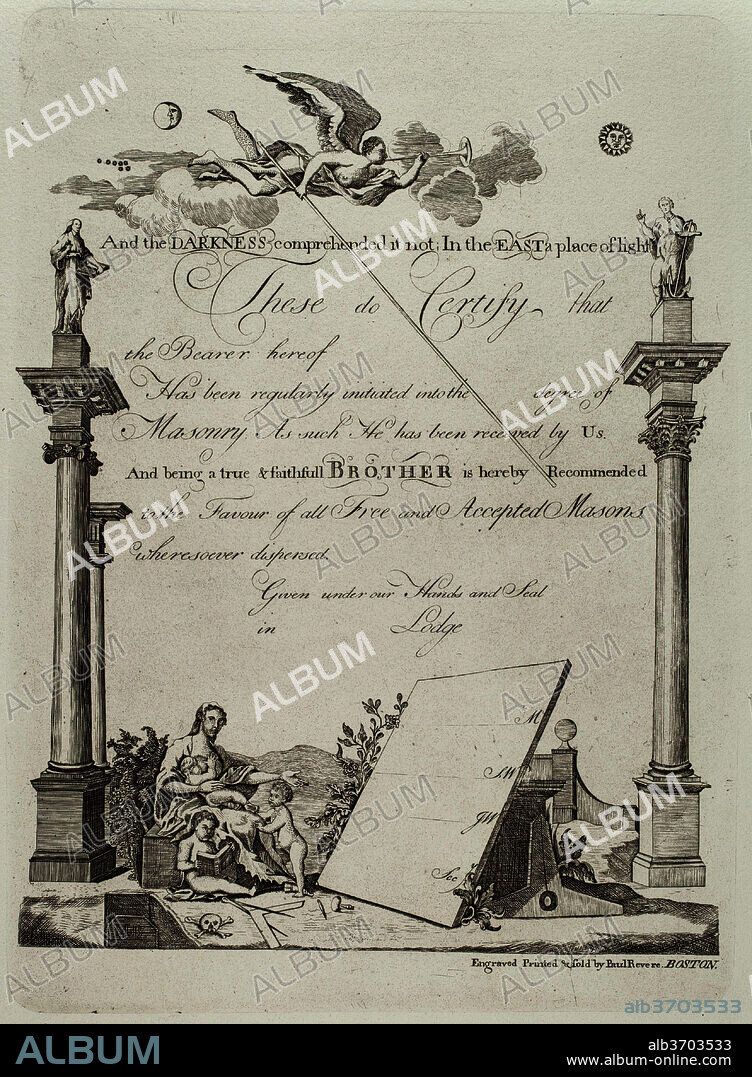 And the DARKNESS comprehended it not; In the EAST a place of light
These do Certify that
the Bearer hereof
Has been regularly initiated into the degree of
Masonry. As such He has been received by Us.
And being a true & faithfull BROTHER is hereby Recommended
to the Favour of all Free and Accepted Masons
wheresoever dispersed.
Given under our Hands and Seal
in Lodge
M
S.W
J.W
Sec
Engraved Printed & Sold by Paul Revere. BOSTON.
ALBUM
alb3703533
ALBUM
alb3703533
www.album-online.com